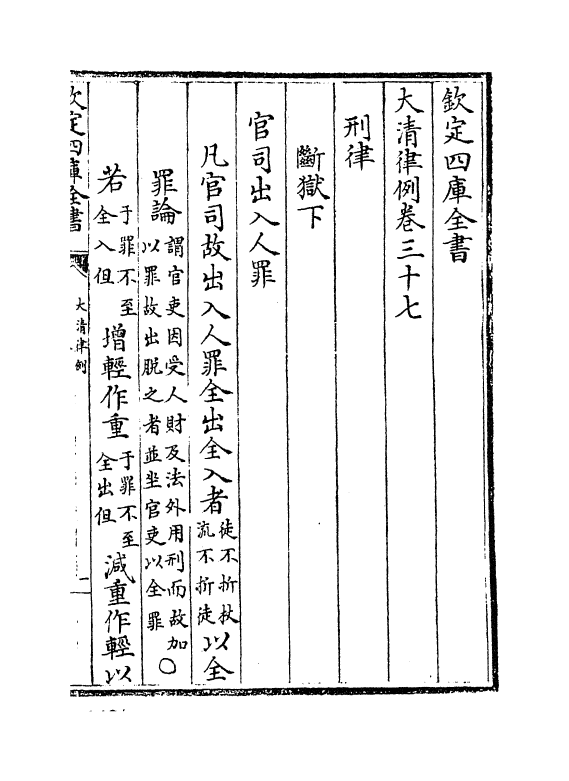 欽定四庫全書
大清律例卷三十七
刑律
斷獄下
官司出入人罪
凡官司故出入人罪全出全入者徒不折杖流不折徒以全
罪論謂官吏因受人財及法外用刑而故加以罪故出脫之者並坐官吏以全罪○
若于罪不至全入但增輕作重于罪不至全出但減重作輕以
欽定四庫全書
大清律例